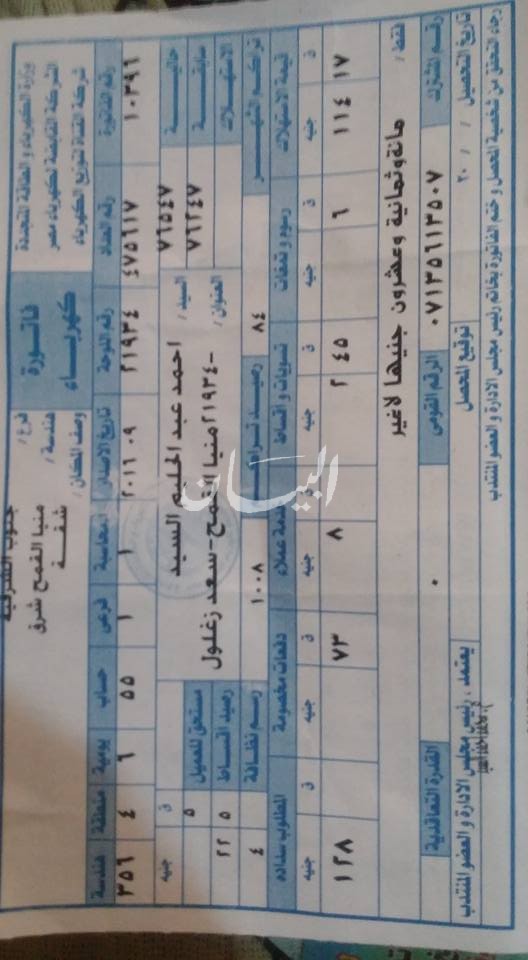 وزارة الكهرباء والطاقة المتجددة
الشركة القابضة لكهرباء مصر
شركة القناة لتوزيع الكهرباء
فاتورة
كهرباء
فرع / جنوب الشرقية
هندسة / منيا القمح شرق
وصف المكان / شقة
رقم الفاتورة رقم العداد رقم اللوحة تاريخ الاصدار المحاسبة فرعى حساب يومية منطقة هندسة
١٠٣٩٦ ٤٧٥٦١٧ ٢١٩٣٤ ٢٠١٦ ٠٩ ١ ١ ٥٥ ٦ ٤ ٣٥٦
حالية ٧٦٥٤٧ السيد / احمد عبد الحليم السيد
ق جنيه
سابقة ٧٦٢٤٧ العنوان / ٢١٩٣٤-منيا القمح-سعد زغلول
مستحق للعميل ٥
الاستهلاك
رصيد اقساط ٥ ٢٢
تراكم الشهر ٨٤ ١٠٠٨ رسم نظافة ٤
قيمة الاستهلاك رسوم ودمغات تسويات واقساط خدمة عملاء دفعات مخصومة المطلوب سداده
ق جنيه ق جنيه ق جنيه ق جنيه ق جنيه ق جنيه
١٧ ١١٤ ٦ ٤٥ ٢ ٨ ٧٣ ١٢٨
فقط / مائة وثمانية وعشرون جنيها لاغير
رقم المشترك ٠٧١٣٥٦١٣٥٠٧ الرقم القومى ٠ القدرة التعاقدية
تاريخ التحصيل / / ٢٠ توقيع المحصل يعتمد ، رئيس مجلس الادارة و العضو المنتدب
رجاء التحقق من شخصية المحصل وختم الفاتورة بخاتم رئيس مجلس الادارة و العضو المنتدب
البيان